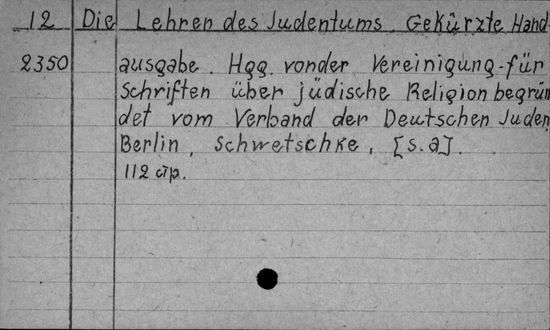 12 Die Lehren des Judentums. Gekürzte Hand-
2350 ausgabe. Hgg. von der Vereinigung für
Schriften über jüdische Religion begrün
det vom Verband der Deutschen Juden
Berlin, Schwetschke, [s.a].
112 стр.